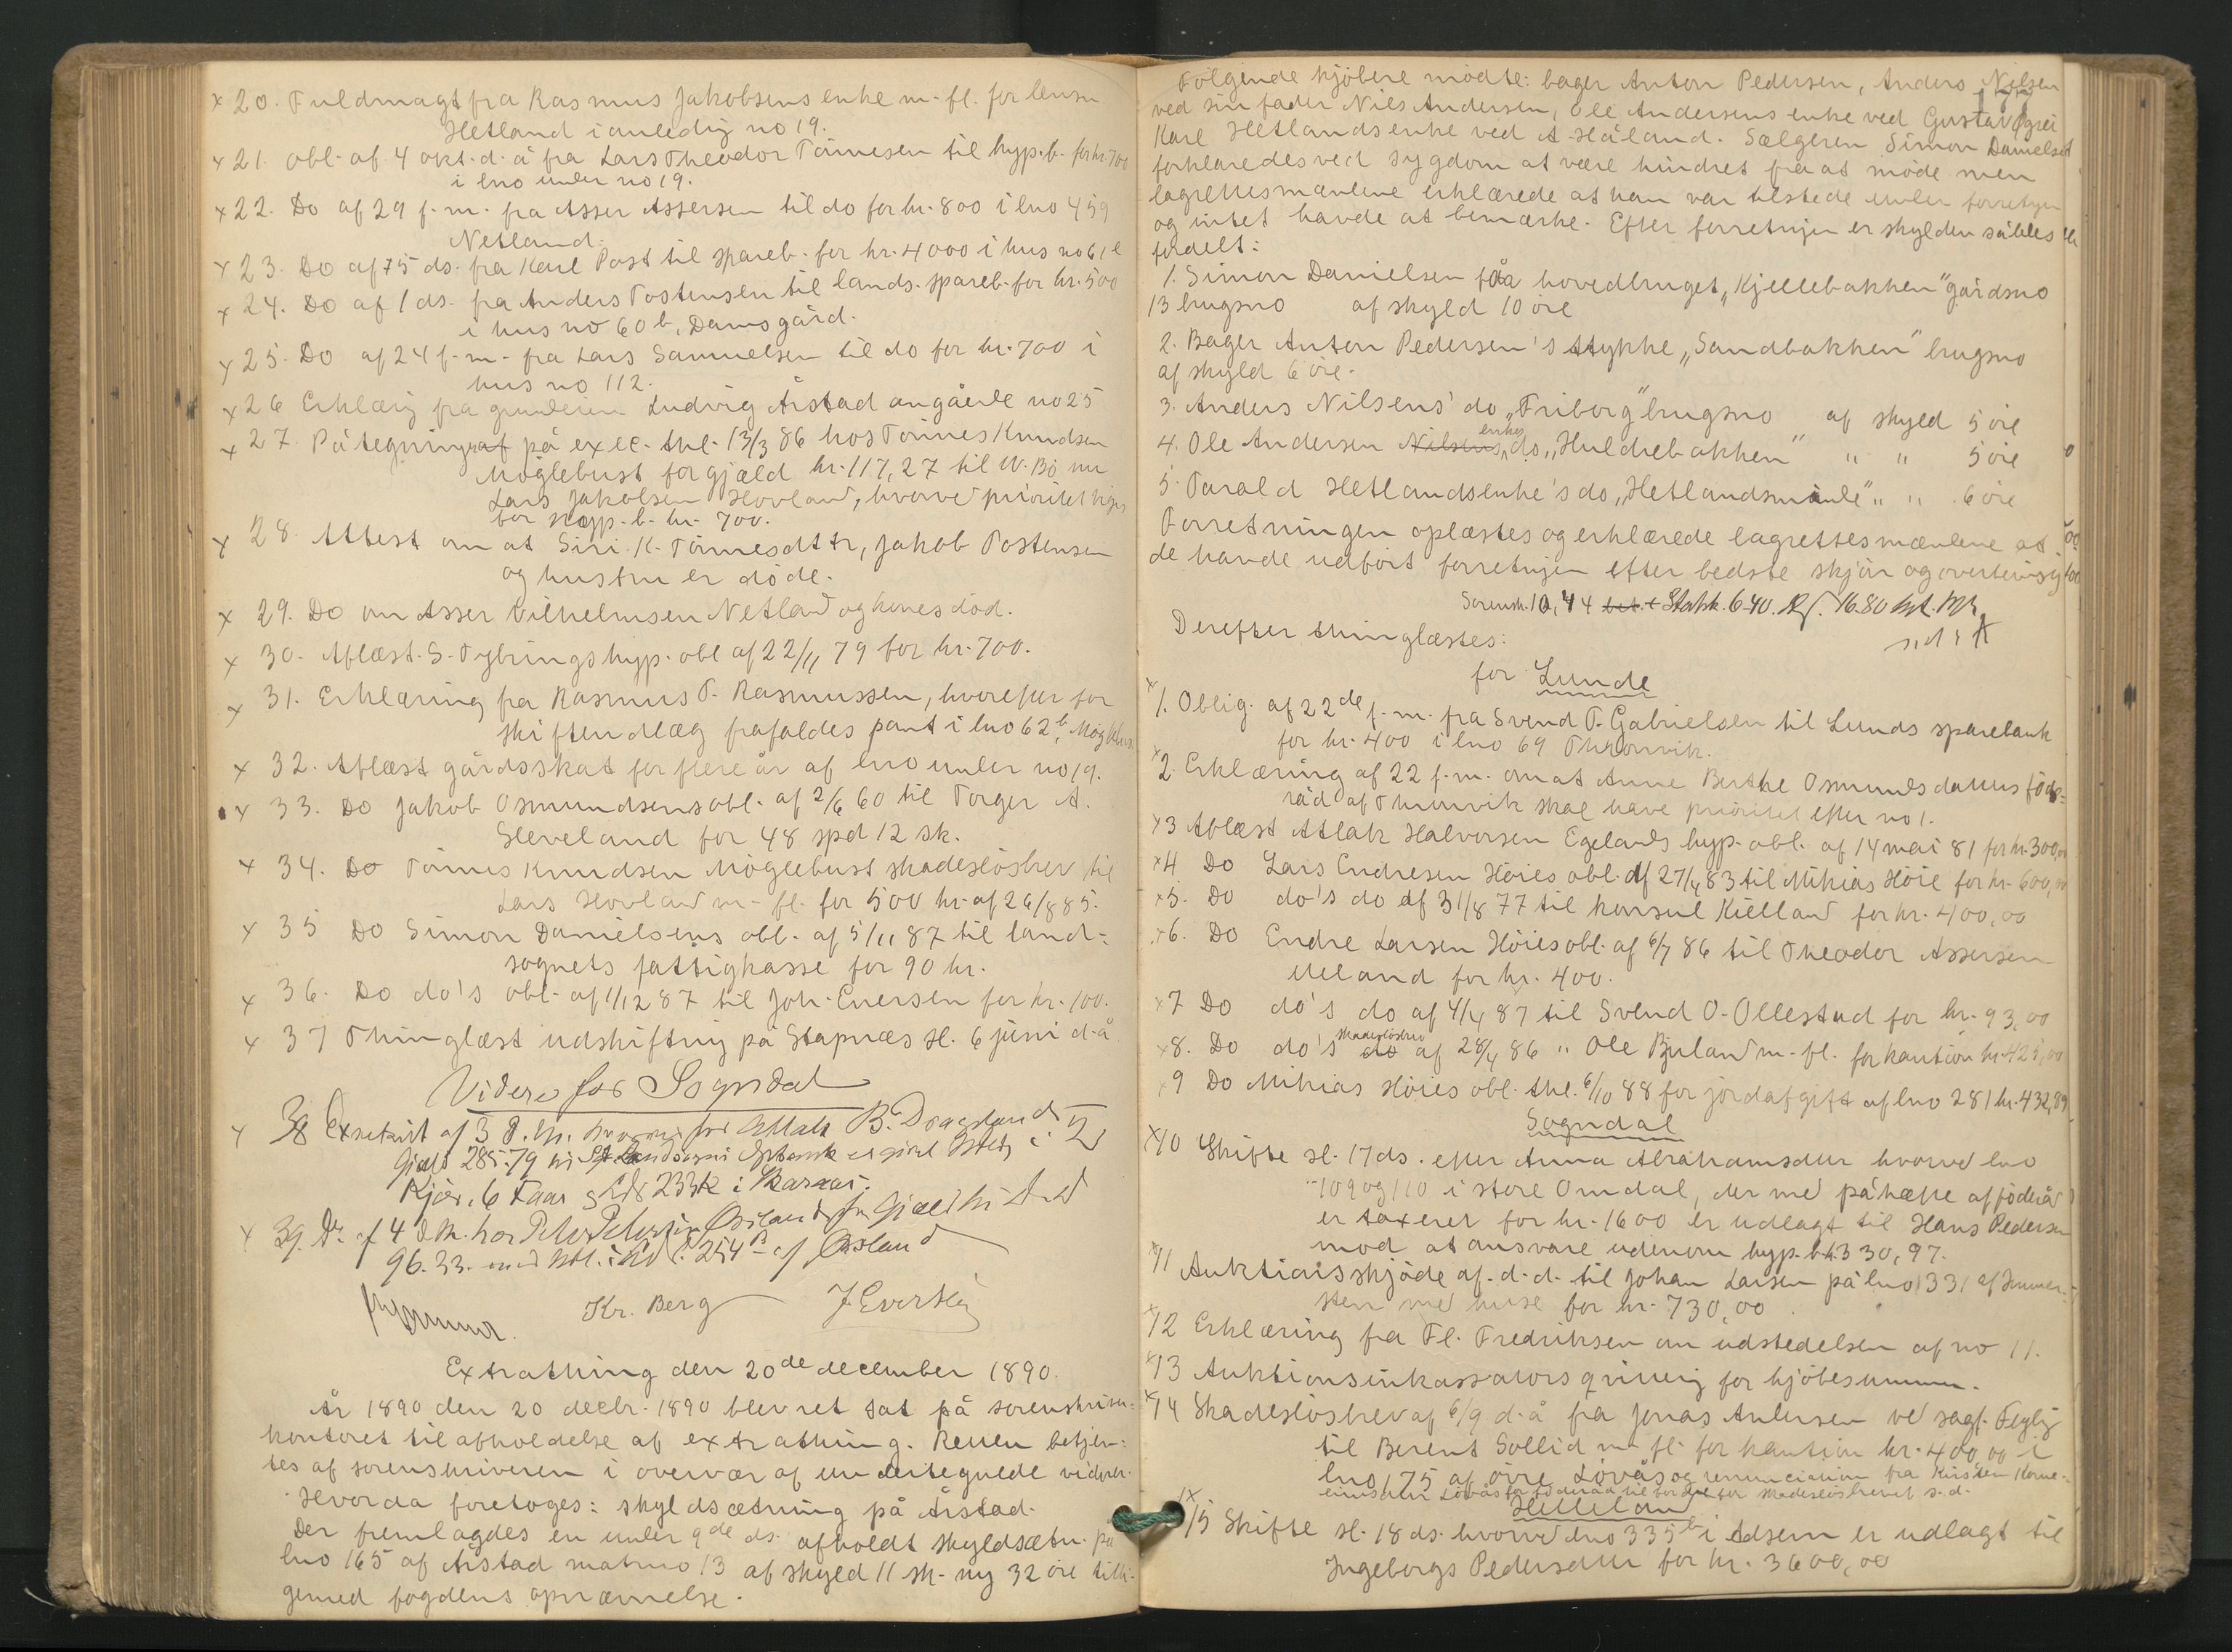 x 20. Fuldmagt fra Rasmus Jakobsens enke m. fl. for lensm
Hetland i anledng no 19.
x 21. obl. af 4 okt. d. å fra Lars Theodor Tönnesen til hyp. b. for kr 700
i lno under no 19.
x 22. Do af 29 f. m. fra Asser Assersen til do for kr. 800 i lno 459
Netland.
x 23. Do af 75 ds. fra Karl Post til spareb. for kr. 4000 i hus no 61 e
x 24. Do af 1 ds. fra Anders Tostensen til lands. spareb. for kr. 500
i hus no 60 b, Damsgård.
x 25. Do af 24 f. m. fra Lars Samuelsen til do for kr. 700 i
hus no 112.
x 26 Erklærg fra grundeien Ludvig Årstad angående no 25
x 27. Påtegning af på exec. thl. 13/3 86 hos Tönnes Knudsen
Möglebust for gjæld kr. 117,27 til W. Bö nu
Lars Jakobsen Hovland, hvorved prioritet viges
for Hyp. b. kr. 700.
x 28. Attest om at Siri K. Tönnesdttr, Jakob Tostensen
og hustru er döde.
x 29. Do om Asser Vilhelmsen Netland og kones död.
x 30. Aflæst S. Tybrings hyp. obl af 22/11 79 for kr. 700.
x 31. Erklæring fra Rasmus T. Rasmussen, hvorefter for
skiftendlæg frafaldes pant i lno 62 b, Möglebust
x 32. Aflæst gårdsskat for flere år af lno under no 19.
x 33. Do Jakob Osmundsens obl. af 2/6 60 til Torger A.
Sleveland for 48 spd 12 sk.
x 34. Do Tönnes Knudsen Möglebust skadeslösbrev til
Lars Hovland m. fl. for 500 kr. af 26/8 85.
x 35 Do Simon Danielsens obl. af 5/11 87 til land-
sognets fattigkasse for 90 kr.
x 36. Do do's obl. af 1/12 87 til Joh. Evensen for kr. 100.
x 37 Thinglæst udskiftning på Stapnæs sl. 6 juni d. å
Videre for Sogndal
x 38 Exekut af 3 d. m. hvorved for Attak B. Drageland
Gjæld 285.79 til Landsogns Spbank er givet Udlæg i 2
Kjör, 6 Faar
x 39. Do af 4 d. m. hos Peter Petersen Aasland for Gjæld
96.33. med Udl. i 254 af Aasland
Kr. Berg J Evertsen
Extrathing den 20de december 1890.
År 1890 den 20 decbr. 1890 blev ret sat på sorenskriver-
kontoret til afholdelse af extrathing. Retten betjen-
tes af sorenskriveren i overvær af undertegnede vidner.
Hvorda foretoges: skyldsætning på Årstad.
Der fremlagdes en under 9de ds. afholdt skyldsætn. på
lno 165 af Årstad matrno 13 af skyld 11 sk. ny 32 öre tilli-
gemed fogdens opnævnelse.
Fölgende kjöbere mödte: bager Anton Pedersen, Anders Nilsen
ved sin fader Niels Andersen, Ole Andersens enke ved Gustav
Karl Hetlands enke ved A. Håland. Sælgeren Simon Danielsen
forklaredes ved sygdom at være hindret fra at möde men
lagrettesmændene erklærede at han var tilstede under forretngen
og intet havde at bemærke. Efter forretngen er skylden således
fordelt:
1. Simon Danielsen får hovedbruget "Kjellebakken" gårdsno
13 brugsno af skyld 10 öre
2. Bager Anton Pedersen's stykke "Sandbakken" brugsno
af skyld 6 öre.
3. Anders Nilsens' do "Friborg" brugsno af skyld 5 öre
4. Ole Andersen Nilsens enkes do "Huldrebakken" " " 5 öre
5. Tarald Hetlands enke's do "Hetlandsminde" " " 6 öre
Forretningen oplæstes og erklærede lagrettesmændene at
de havde udfört forretngen efter bedste skjön og overbevisng
Sorensk. 10,44 Statsk. 6.40. Rf. 16.80
Derefter thinglæstes:
for Lunde
x 1. Oblig. af 22de f. m. fra Svend T. Gabrielsen til Lunds sparebank
for kr. 400 i lno 69 Thronvik.
x 2. Erklæring af 22 f. m. om at Anne Berthe Osmundsdatters föde-
råd af Thronvik skal have prioritet efter no 1.
x 3 Aflæst Atlak Halvorsen Egelands hyp. obl. af 14 mai 81 for kr. 300,00
x 4 Do Lars Endresen Höies obl. af 27/4 83 til Mikias Höie for kr. 600,00
x 5. Do do's do af 31/8 77 til konsul Kielland for kr. 400,00
x 6. Do Endre Larsen Höies obl. af 6/7 86 til Theodor Assersen
Ueland for kr. 400.
x 7 Do do's do af 4/4 87 til Svend O. Ollestad for kr. 93,00
x 8. Do do's do skadeslösbrev af 28/4 86 " Ole Bjuland m. fl. for kaution kr. 425,00
x 9 Do Mikias Höies obl. thl. 6/10 88 for jordafgift af lno 281 kr. 432,89
Sogndal
x 10 Skifte sl. 17 ds. efter Anna Abrahamsdtter hvorved lno
109 og 110 i store Omdal, der med påhæfte af föderåd
er taxeret for kr. 1600 er udlagt til Hans Pedersen
mod at ansvare udenom hyp. b. kr. 330,97.
x 11 Auktionsskjöde af d. d. til Johan Larsen på lno 331 af
sten med huse for kr. 730,00
x 12 Erklæring fra Fl. Fredriksen om udstedelsen af no 11.
x 13 Auktionsinkassators qvittering for kjöbesummen.
x 14 Skadeslösbrev af 6/9 d. å fra Jonas Andersen ved sagf. Feyling
til Berent Sollid m. fl. for kaution kr. 400,00 i
lno 175 af övre Lövås og renunciation fra Kirsten Korne-
liusdatter Lövås for föderåd til fordel for skadeslösbrevet s. d.
Helleland
x 15 Skifte sl. 18 ds. hvorved lno 335 b i Adsem er udlagt til
Ingeborgs Pedersdtter for kr. 3600,00